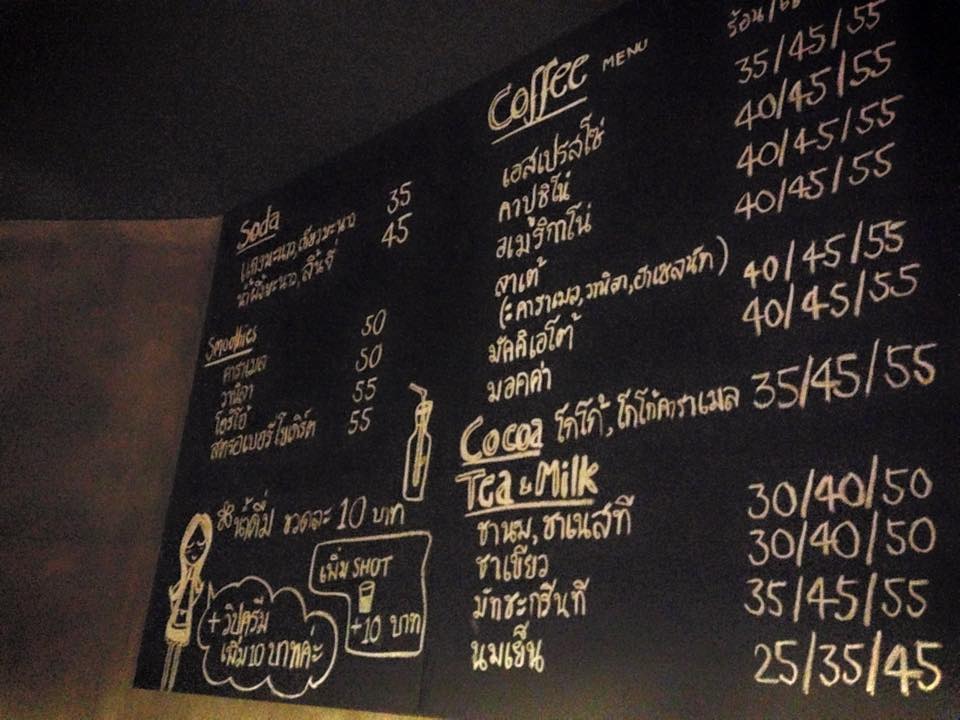 Soda
แดงมะนาว, เขียวมะนาว 35
น้ำผึ้งมะนาว, ลิ้นจี่ 45
Smoothies
คาราเมล 50
วานิลา 50
โอริโอ้ 55
สตรอเบอรี่โยเกิร์ต 55
น้ำดื่ม ขวดละ 10 บาท
เพิ่ม SHOT
+10 บาท
+ วิปครีม
เพิ่ม 10 บาทค่ะ
Coffee MENU
ร้อน/
เอสเปรสโซ่ 35/45/55
คาปูชิโน่ 40/45/55
อเมริกาโน่ 40/45/55
ลาเต้ 40/45/55
(คาราเมล, วานิลา, ฮาเซลนัท)
มัคคิเอโต้ 40/45/55
มอคค่า 40/45/55
Cocoa โกโก้, โกโก้คาราเมล 35/45/55
Tea & Milk
ชานม, ชาเนสที 30/40/50
ชาเขียว 30/40/50
มัทชะกรีนที 35/45/55
นมเย็น 25/35/45